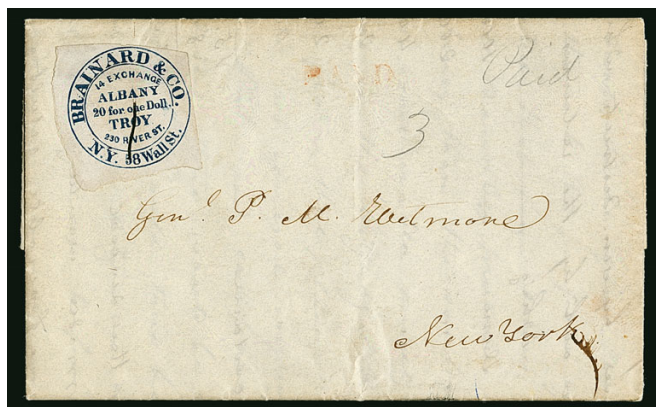 BRAINARD & CO.
14 EXCHANGE
ALBANY
20 for one Doll.
TROY
230 RIVER ST.
N.Y. 58 Wall St.
Paid
3
Genl. P. M. Wetmore
New York